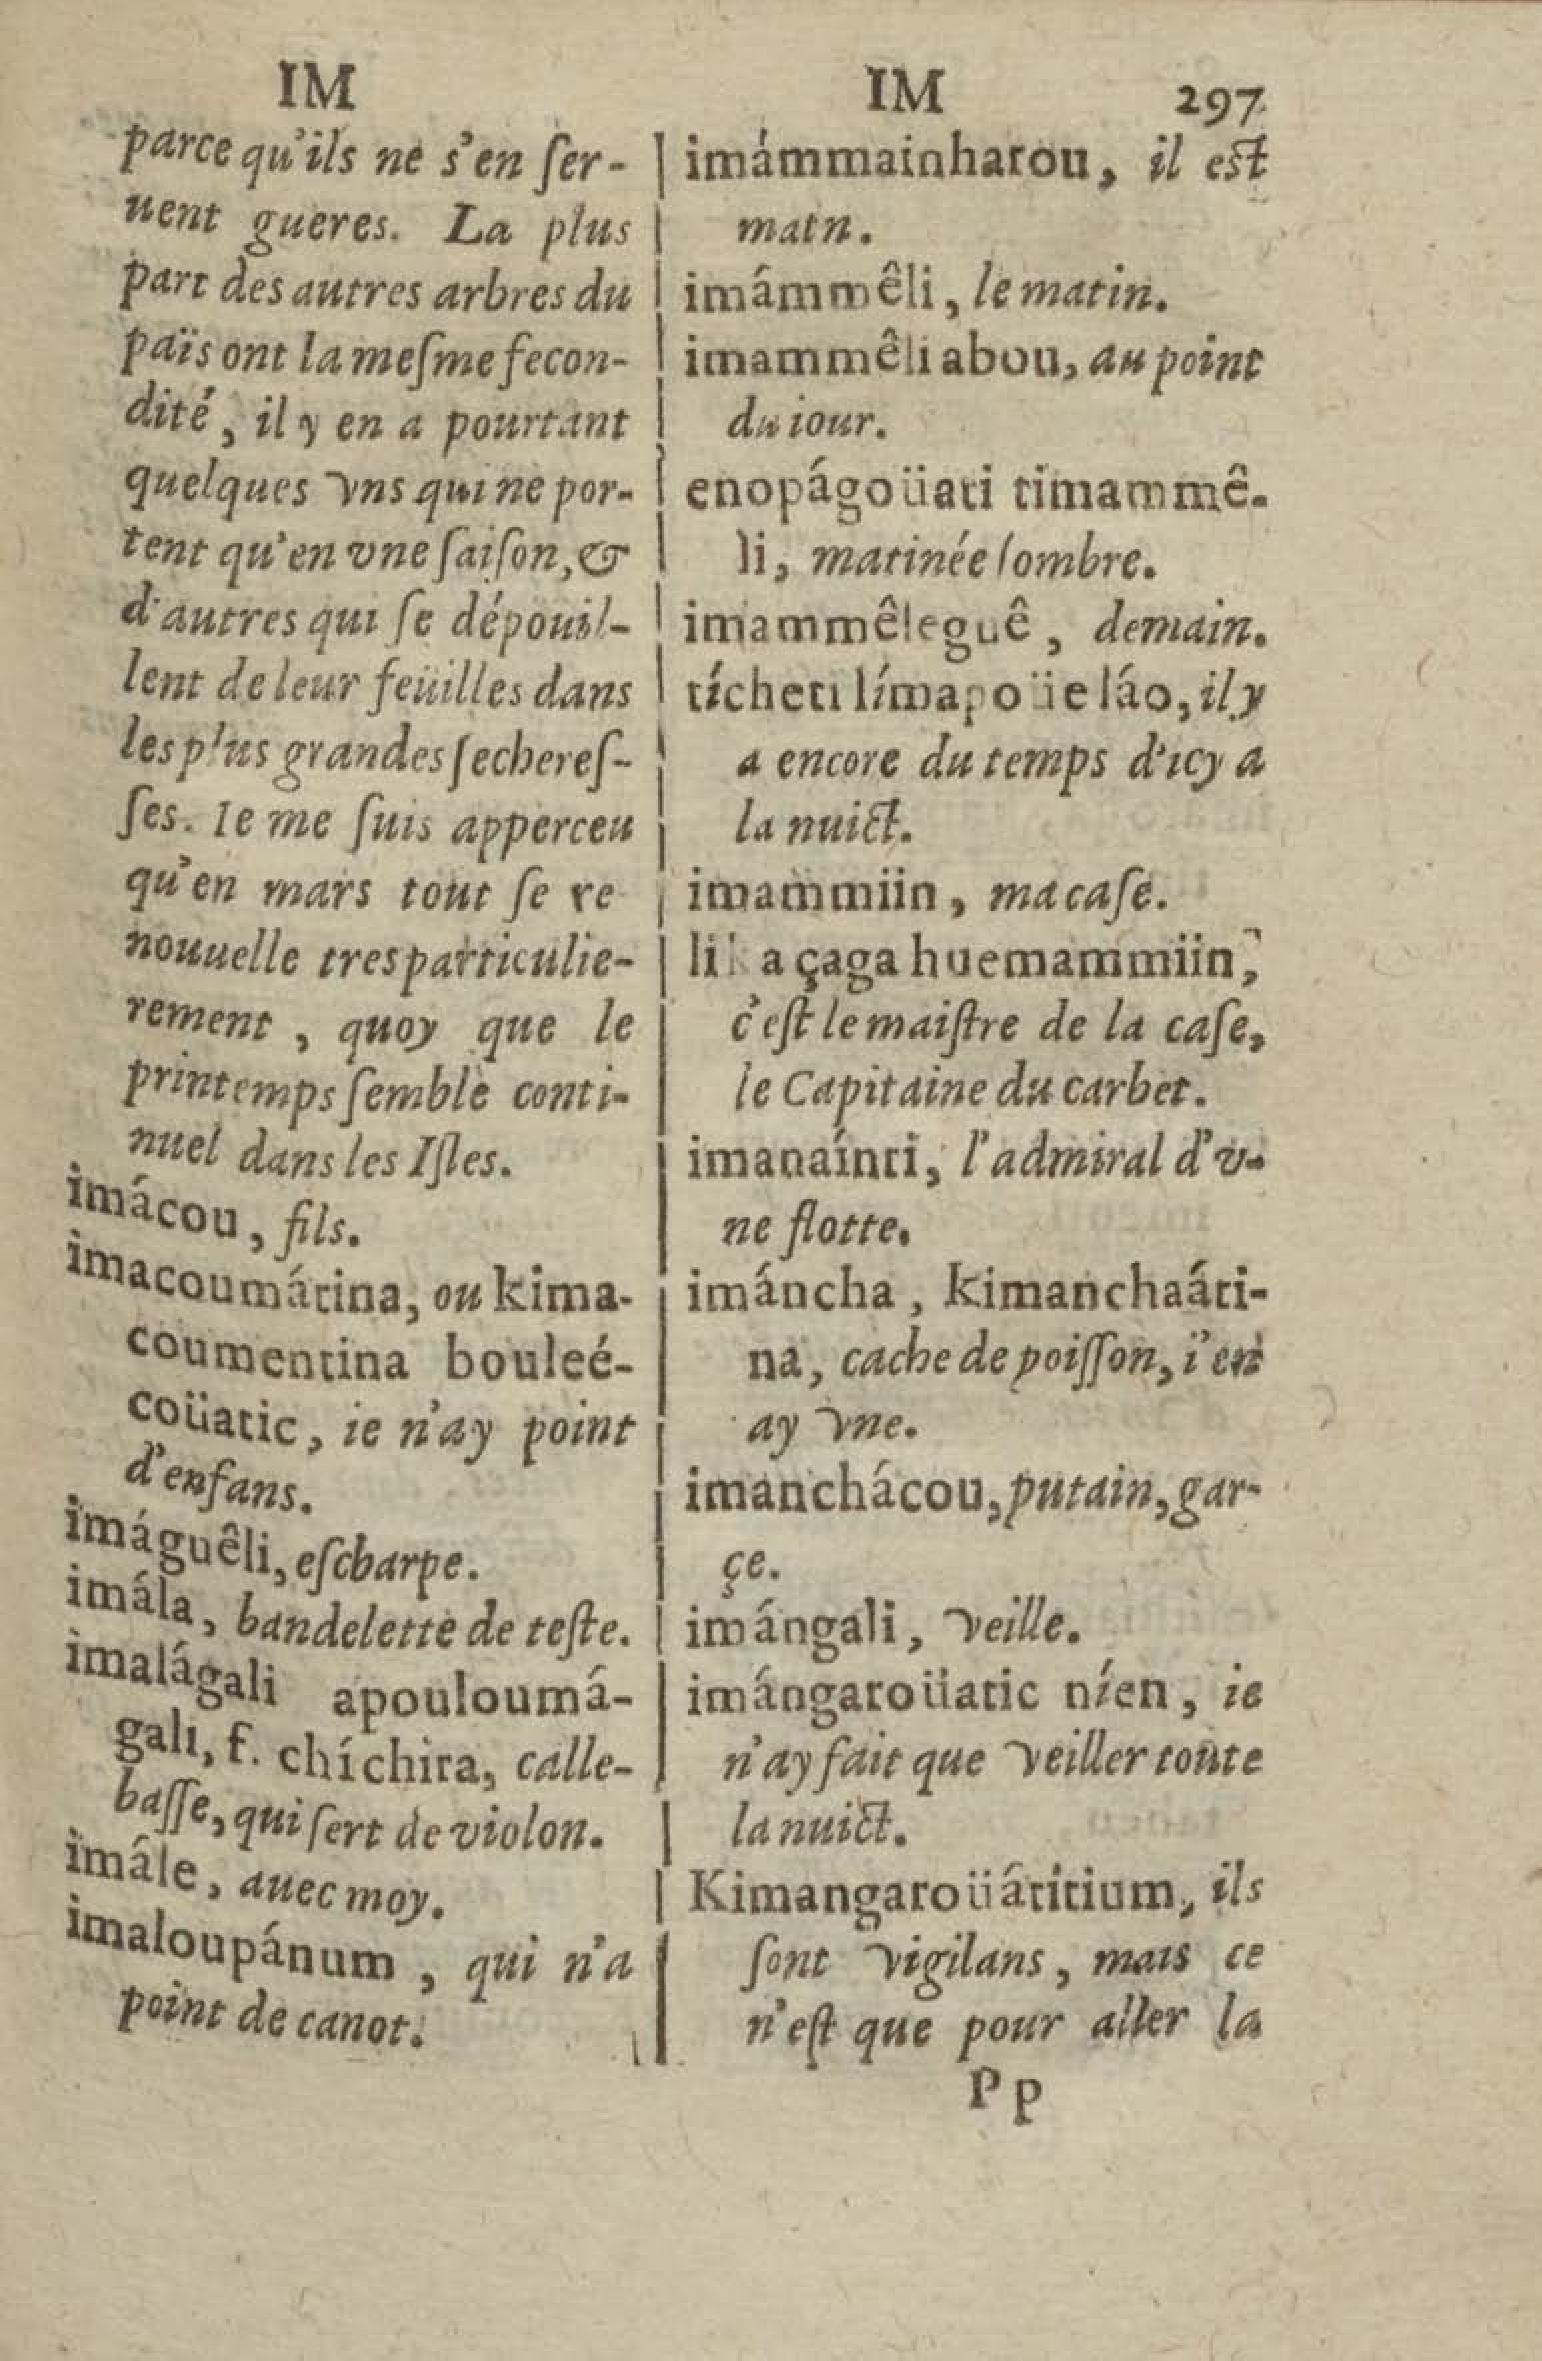 IM
parce qu'ils ne s'en ſer-
uent gueres. La plus
part des autres arbres du
païs ont la meſme fecon-
dité, il y en a pourtant
quelques vns qui ne por-
tent qu'en vne ſaiſon, &
d'autres qui ſe dépoüil-
lent de leur feüilles dans
les plus grandes ſechereſ-
ſes. Ie me ſuis apperceu
qu'en mars tout ſe re
nouuelle tres particulie-
rement, quoy que le
printemps ſemble conti-
nuel dans les Iſles.
imácou, fils.
imacoumátina, ou kima-
coumentina bouleé-
coüatic, ie n'ay point
d'enfans.
imáguêli, eſcharpe.
imála, bandelette de teſte.
imalágali apouloumá-
gali, f. chíchira, calle-
baſſe, qui ſert de violon.
imâle, auec moy.
imaloupánum, qui n'a
point de canot.
IM 297
imámmainharou, il est
matn.
imâmmêli, le matin.
imammêli abou, au point
du iour.
enopágoüati timammê-
li, matinée ſombre.
imammêleguê, demain.
tícheti límapoüe láo, il y
a encore du temps d'icy a
la nuict.
imammiin, ma caſe.
lik a çaga huemammiin,
c'eſt le maiſtre de la caſe,
le Capitaine du carbet.
imanaínti, l'admiral d'v-
ne flotte.
imáncha, Kimanchaáti-
na, cache de poiſſon, i'en
ay vne.
imanchácou, putain, gar-
çe.
imángali, veille.
imángaroüatic níen, ie
n'ay fait que veiller toute
la nuict.
Kimangaroüátitium, ils
ſont vigilans, mais ce
n'eſt que pour aller la
Pp